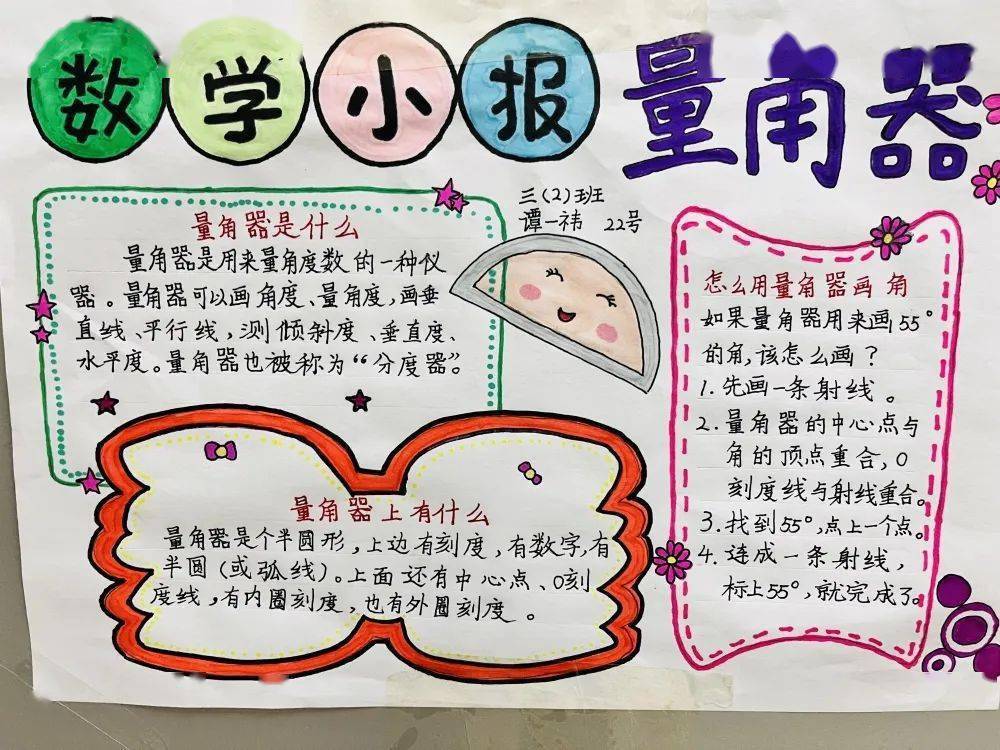 数学小报
量角器
三(2)班
谭一祎 22号
量角器是什么
量角器是用来量角度数的一种仪
器。量角器可以画角度、量角度,画垂
直线、平行线,测倾斜度、垂直度、
水平度。量角器也被称为“分度器”。
量角器上有什么
量角器是个半圆形,上边有刻度,有数字,有
半圆(或弧线)。上面还有中心点、0刻
度线,有内圈刻度,也有外圈刻度。
怎么用量角器画角
如果量角器用来画55°
的角,该怎么画?
1.先画一条射线。
2.量角器的中心点与
角的顶点重合,0
刻度线与射线重合。
3.找到55°,点上一个点。
4.连成一条射线,
标上55°,就完成了。